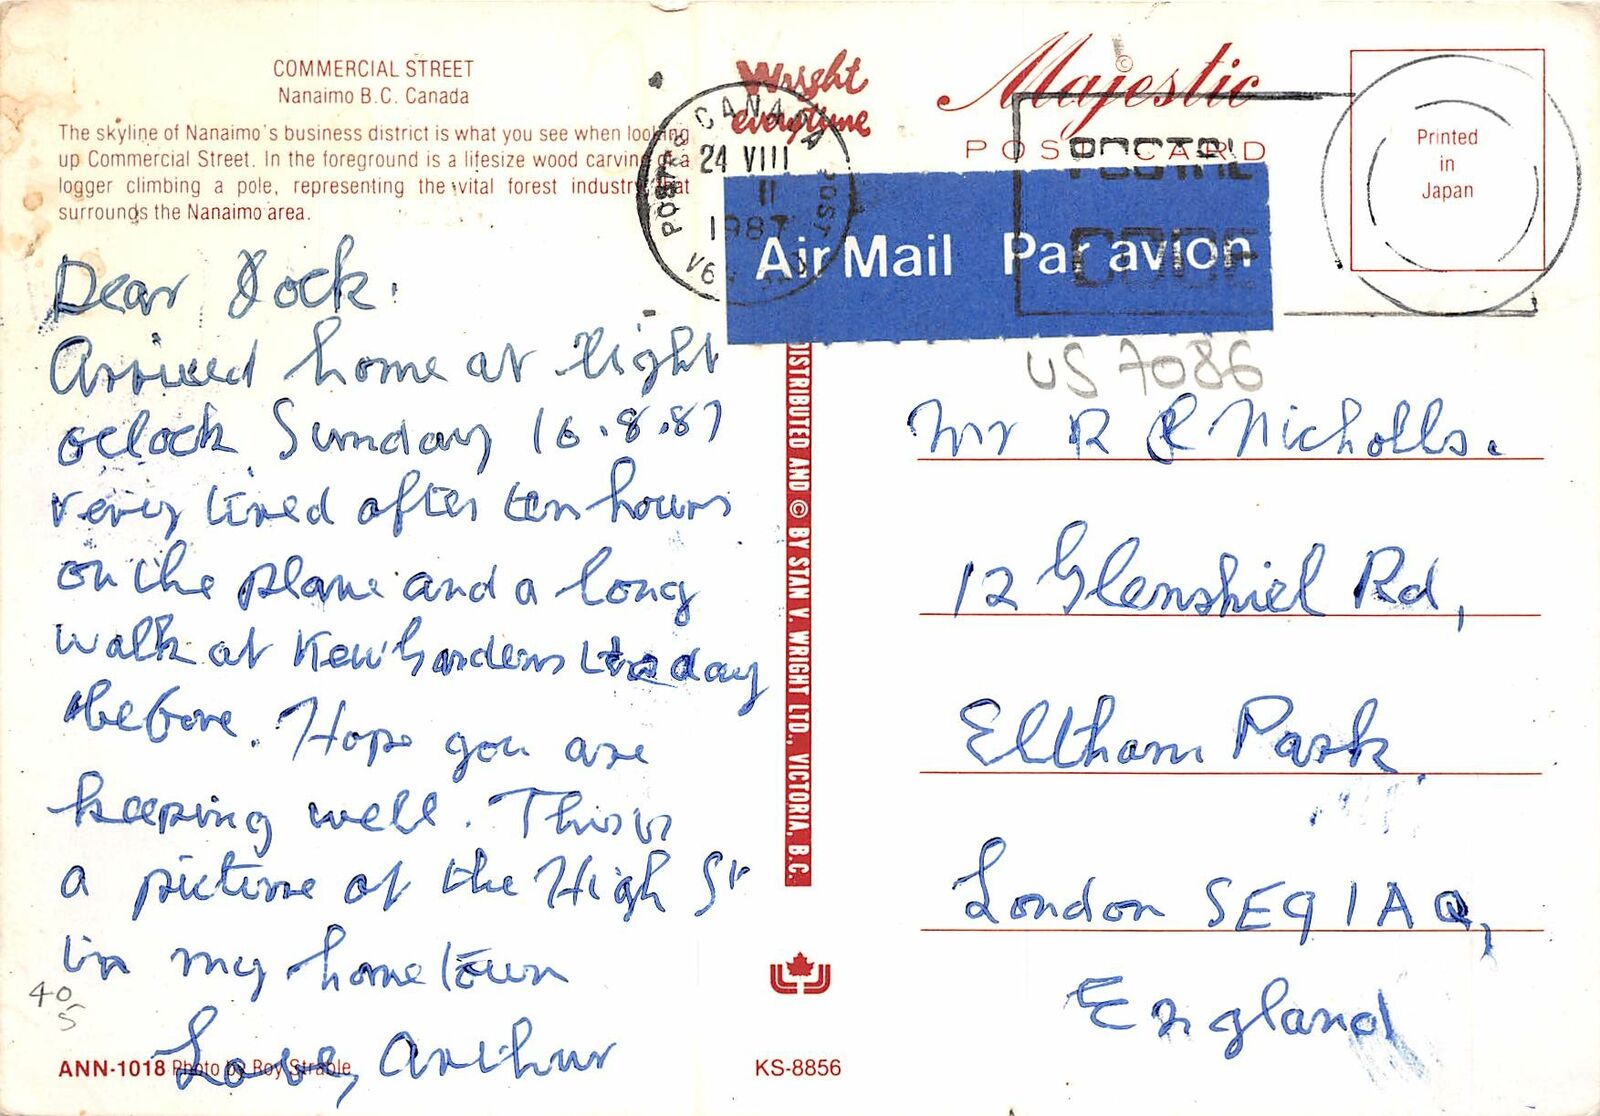 COMMERCIAL STREET
Nanaimo B.C. Canada
The skyline of Nanaimo's business district is what you see when looking
up Commercial Street. In the foreground is a lifesize wood carving of a
logger climbing a pole, representing the vital forest industry that
surrounds the Nanaimo area.
Dear Jock.
Arrived home at eight
oclock Sunday 16.8.87
very tired after ten hours
on the plane and a long
walk at Kew Gardens the day
before. Hope you are
keeping well. This is
a picture of the High St
in my home town
Love, Arthur
40
5
ANN-1018 Photo by Roy Strable
Wright
everytime
Majestic ©
POST CARD
CANADA
24 VIII
11
1987
POSTES
POST
V6
POSTAL
CODE
Air Mail Par avion
Printed
in
Japan
US 7086
DISTRIBUTED AND © BY STAN V. WRIGHT LTD., VICTORIA, B.C.
Mr R R Nicholls.
12 Glenshiel Rd,
Eltham Park
London SE9 1AQ,
England
KS-8856